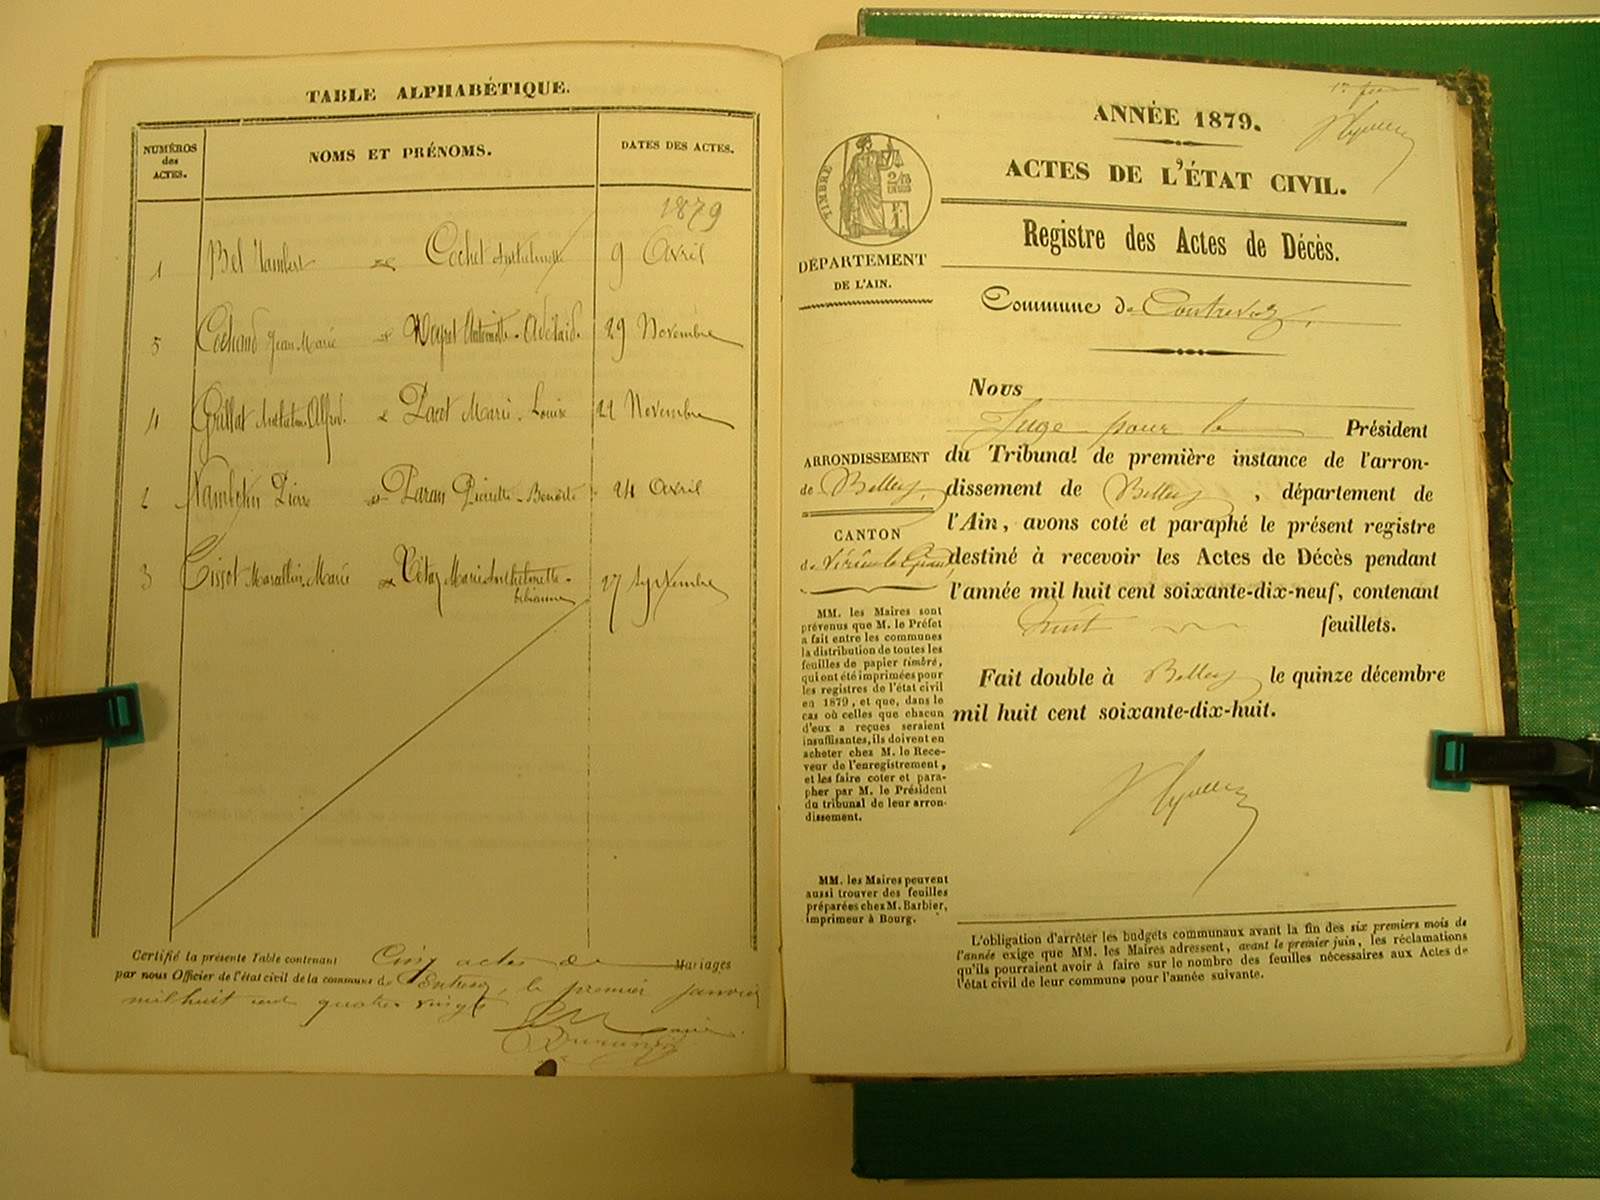 TABLE ALPHABÉTIQUE.
NUMÉROS
des
ACTES.
NOMS ET PRÉNOMS.
DATES DES ACTES.
1879
1 Bel et Cochet 9 Avril
5 Cochand Jean Marie et Antoinette Adélaïd. 29 Novembre
4 Grillat Anthelme Alfred et Pacot Marie Louise 22 Novembre
2 Pierre et Pierrette Benoite 24 Avril
3 Tissot Marcellin Marie et Marie Anthelmette 27 Septembre
bibianne
Certifié la présente Table contenant Cinq actes de Mariages
par nous Officier de l'état civil de la commune de, le premier janvier
mil huit cent quatre vingt
ANNÉE 1879.
ACTES DE L'ÉTAT CIVIL.
TIMBRE
Registre des Actes de Décès.
DÉPARTEMENT
DE L'AIN.
Commune de Contrevoz
Nous
Juge pour le Président
du Tribunal de première instance de l'arron-
dissement de Belley, département de
l'Ain, avons coté et paraphé le présent registre
destiné à recevoir les Actes de Décès pendant
l'année mil huit cent soixante-dix-neuf, contenant
huit feuillets.
Fait double à Belley le quinze décembre
mil huit cent soixante-dix-huit.
ARRONDISSEMENT
de Belley,
CANTON
de Virieu le Grand,
MM. les Maires sont
prévenus que M. le Préfet
a fait entre les communes
la distribution de toutes les
feuilles de papier timbré,
qui ont été imprimées pour
les registres de l'état civil
en 1879, et que, dans le
cas où celles que chacun
d'eux a reçues seraient
insuffisantes, ils doivent en
acheter chez M. le Rece-
veur de l'enregistrement,
et les faire coter et para-
pher par M. le Président
du tribunal de leur arron-
dissement.
MM. les Maires peuvent
aussi trouver des feuilles
préparées chez M. Barbier,
imprimeur à Bourg.
L'obligation d'arrêter les budgets communaux avant la fin des six premiers mois de
l'année exige que MM. les Maires adressent, avant le premier juin, les réclamations
qu'ils pourraient avoir à faire sur le nombre des feuilles nécessaires aux Actes de
l'état civil de leur commune pour l'année suivante.